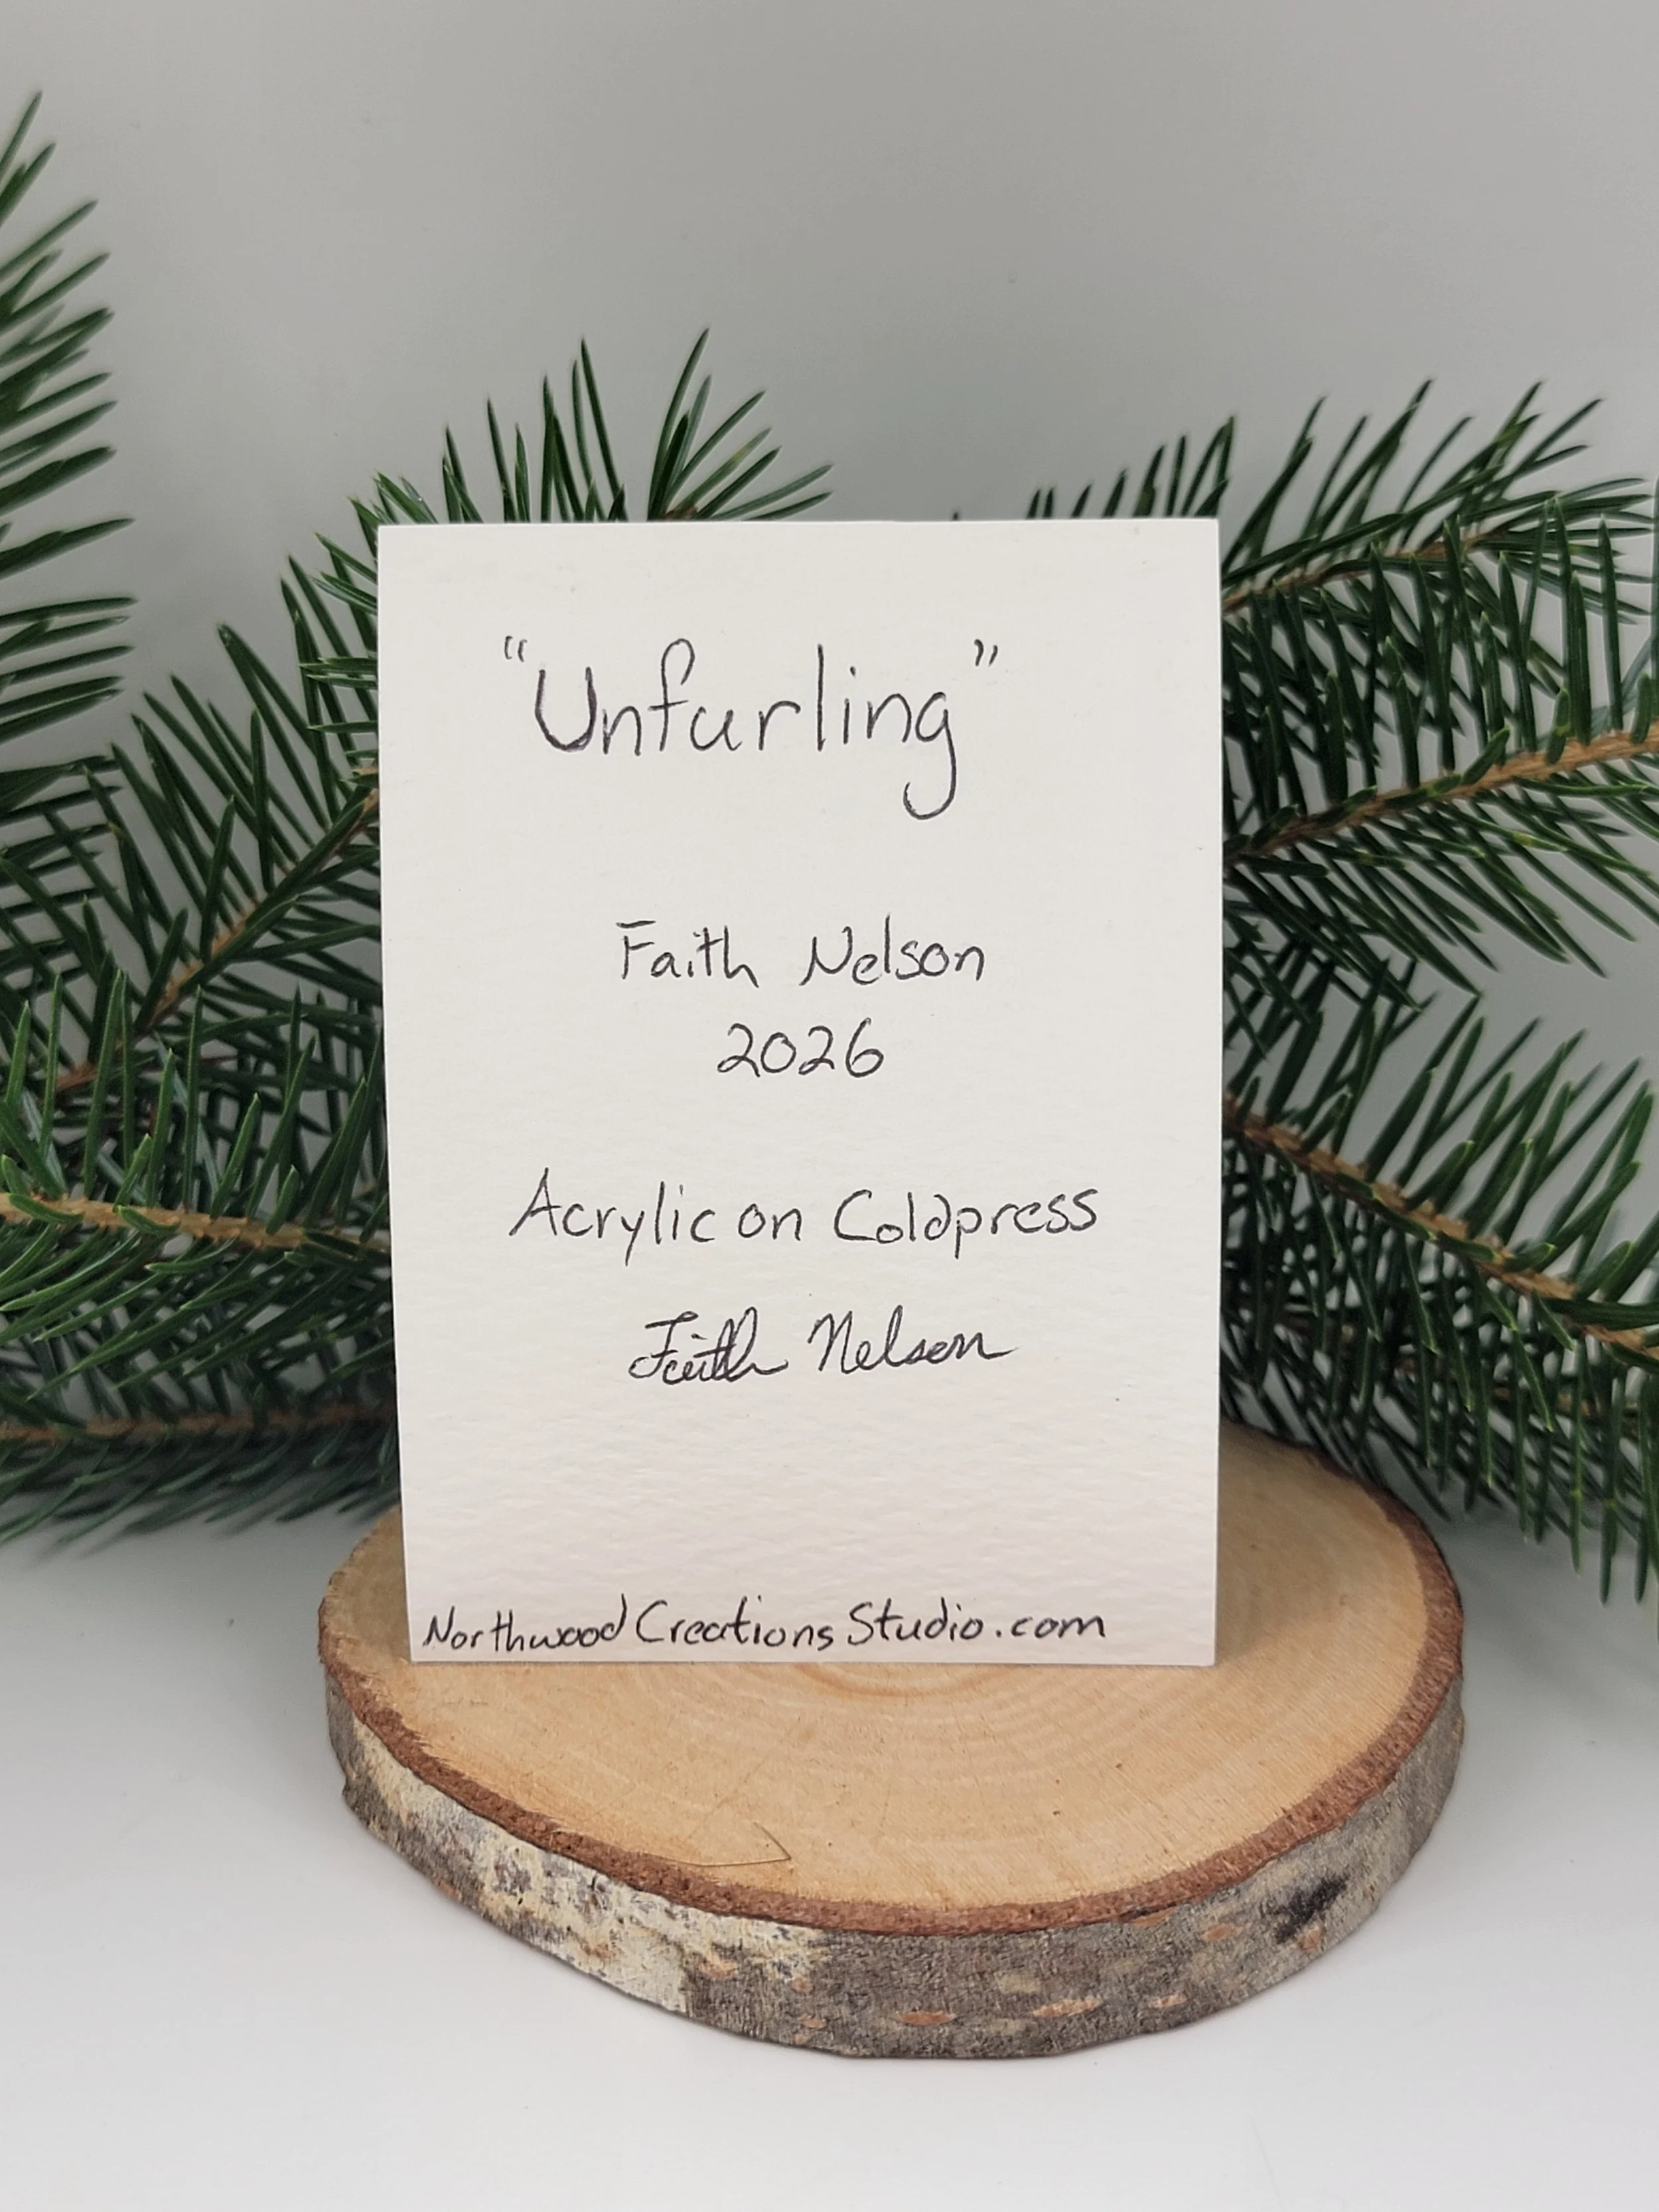 "Unfurling"
Faith Nelson
2026
Acrylic on Coldpress
Faith Nelson
NorthwoodCreationsStudio.com